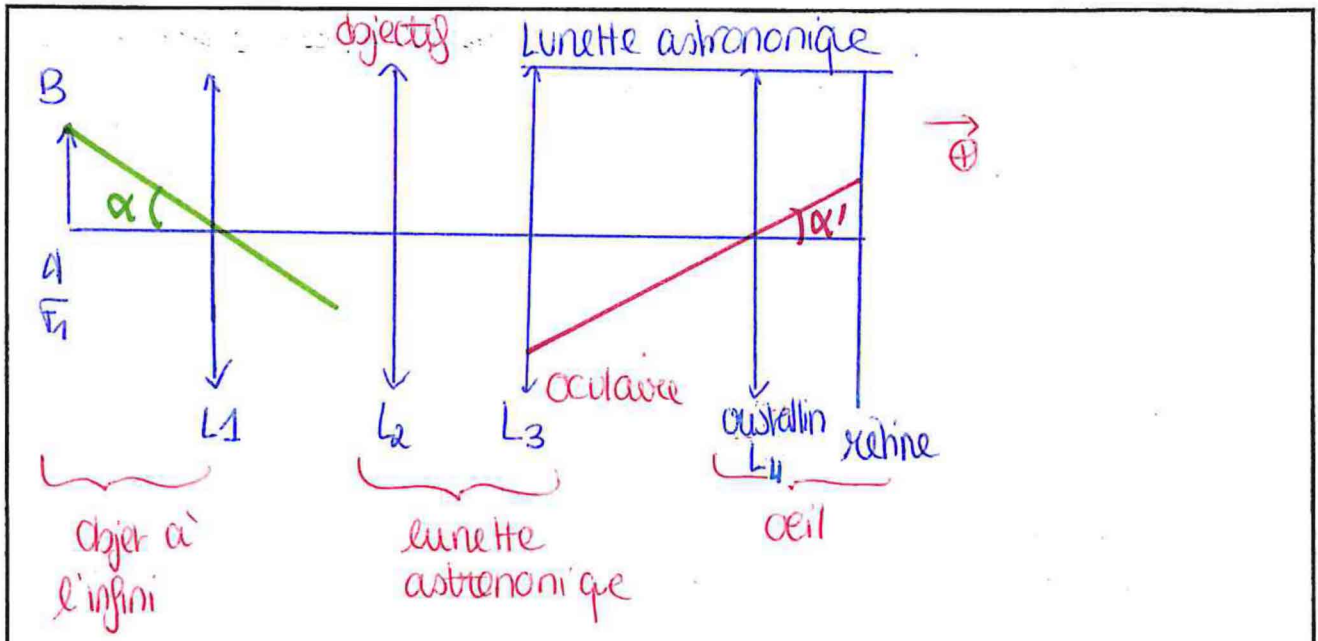 objectif
Lunette astronomique
B
⊕
α
α'
A
F1
oculaire
L1
L2
L3
cristallin
L4
rétine
objet à
l'infini
lunette
astronomique
oeil